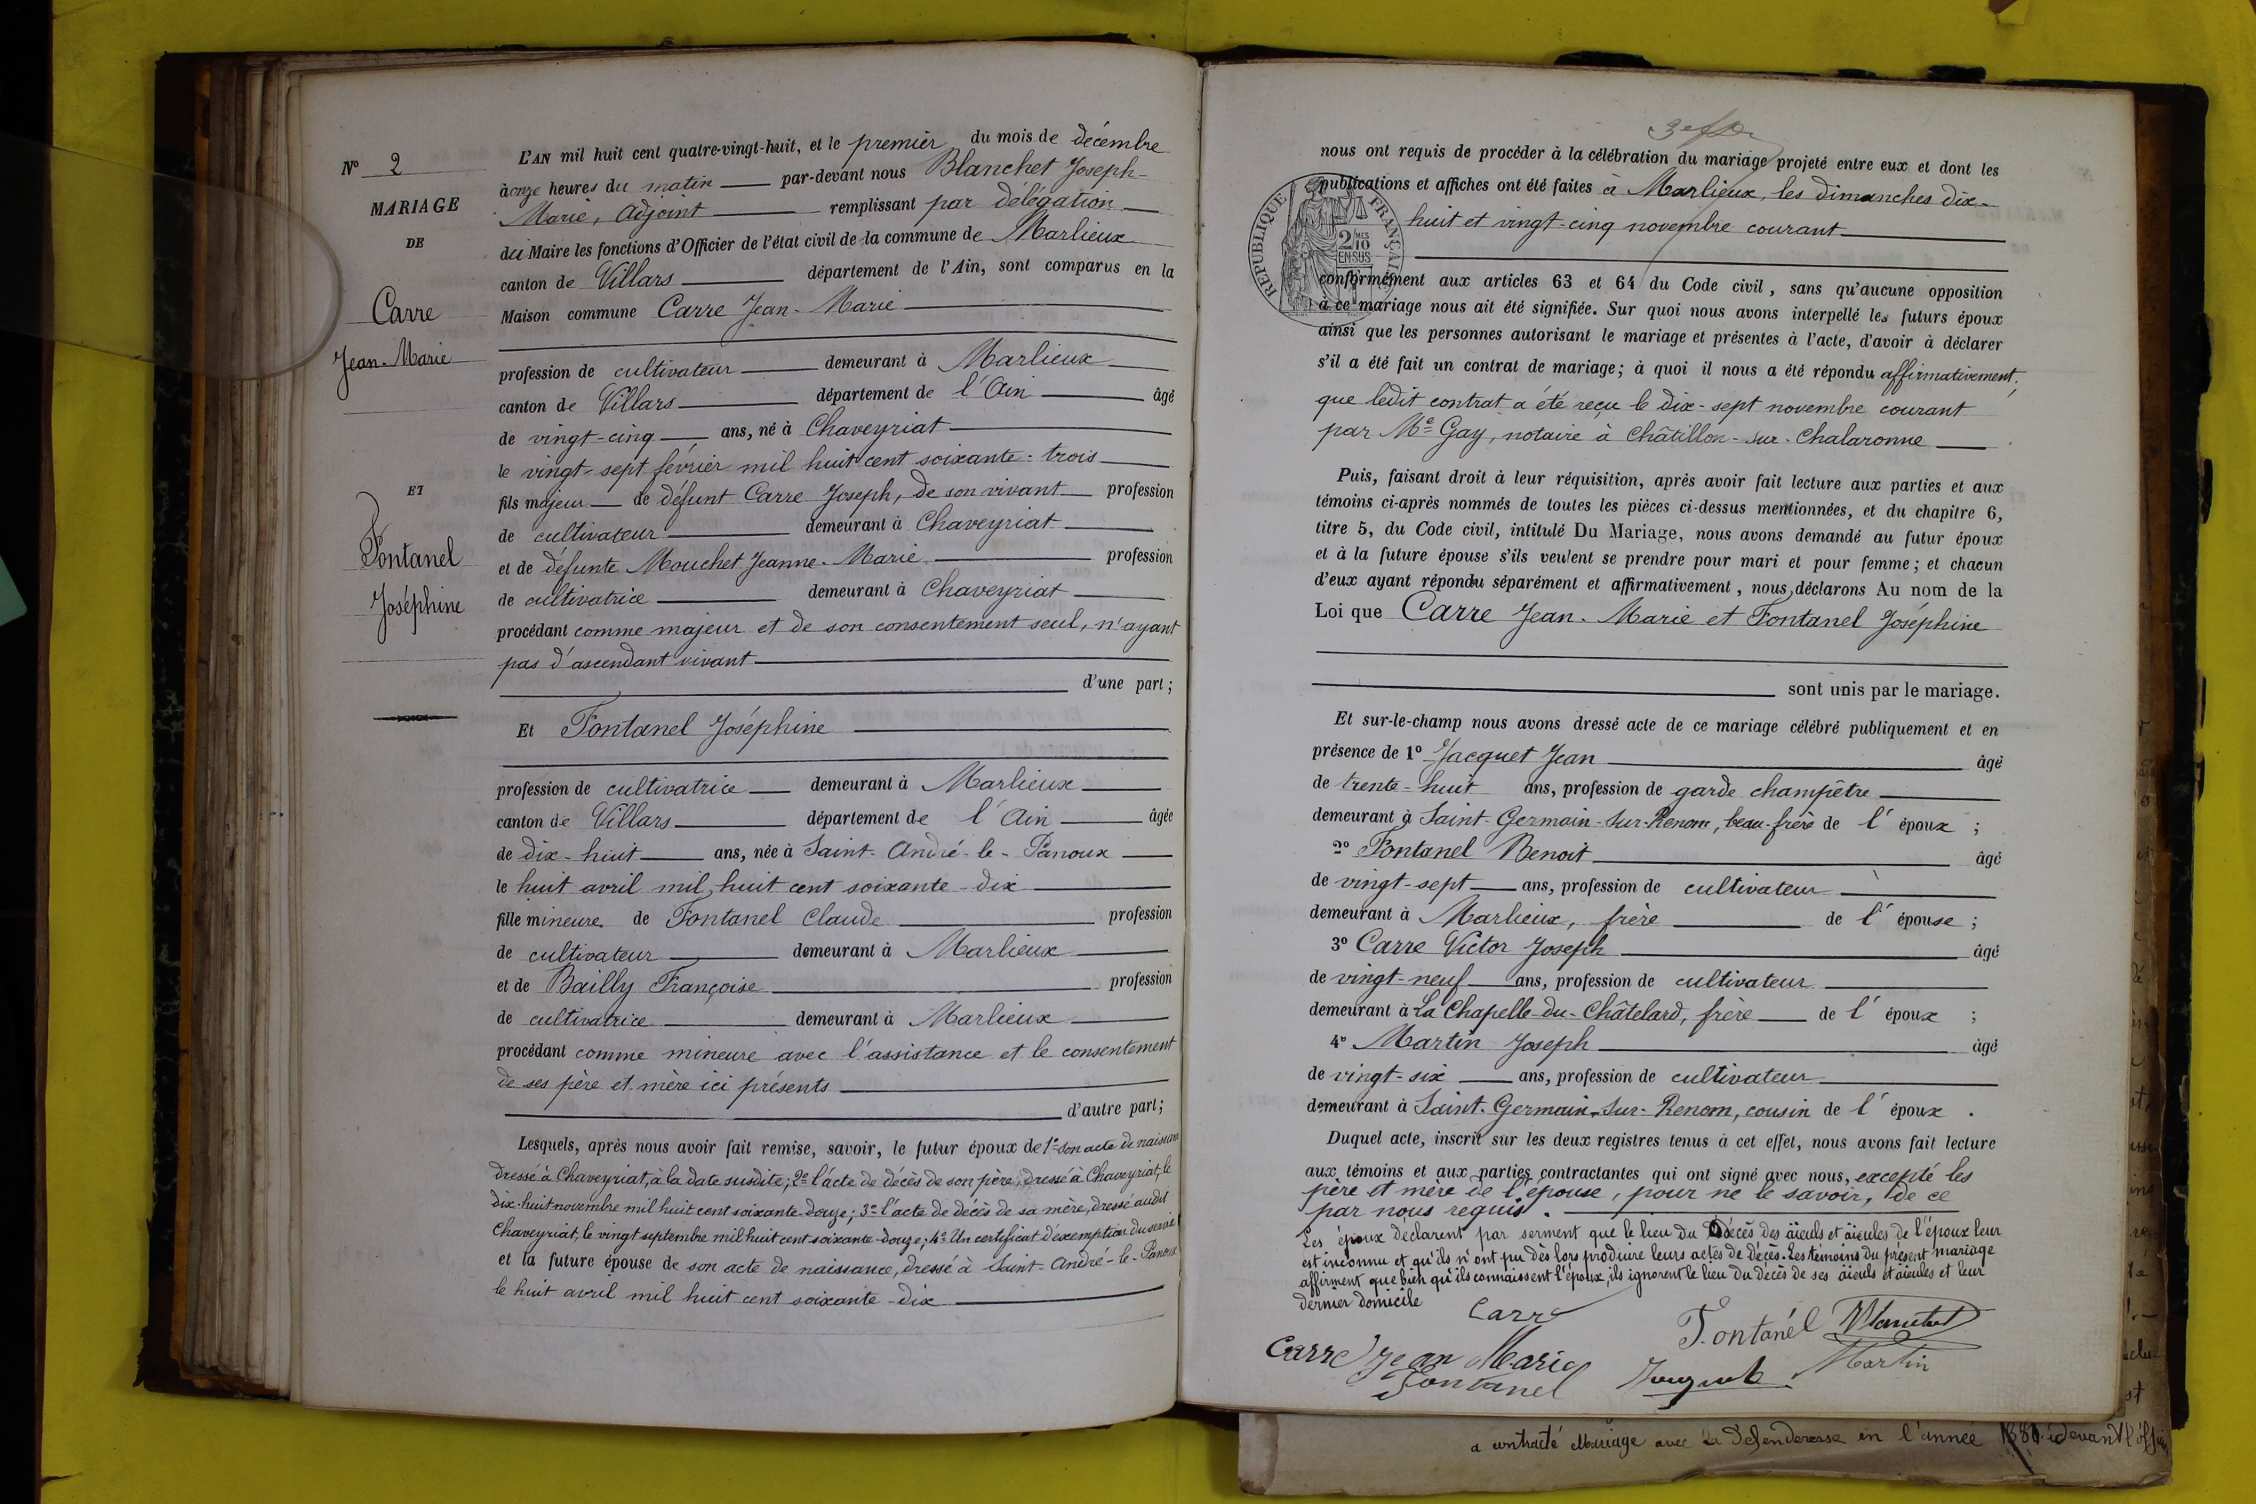 N° 2
MARIAGE
DE
Carre
Jean-Marie
ET
Fontanel
Joséphine
L'AN mil huit cent quatre-vingt-huit, et le premier du mois de décembre
à onze heures du matin par-devant nous Blanchet Joseph-
Marie, Adjoint remplissant par délégation
du Maire les fonctions d'Officier de l'état civil de la commune de Marlieux
canton de Villars département de l'Ain, sont comparus en la
Maison commune Carre Jean-Marie
profession de cultivateur demeurant à Marlieux
canton de Villars département de l'Ain âgé
de vingt-cinq ans, né à Chaveyriat
le vingt-sept février mil huit cent soixante-trois
fils majeur de défunt Carre Joseph, de son vivant profession
de cultivateur demeurant à Chaveyriat
et de défunte Mouchet Jeanne-Marie profession
de cultivatrice demeurant à Chaveyriat
procédant comme majeur et de son consentement seul, n'ayant
pas d'ascendant vivant
d'une part;
Et Fontanel Joséphine
profession de cultivatrice demeurant à Marlieux
canton de Villars département de l'Ain âgée
de dix-huit ans, née à Saint-André-le-Panoux
le huit avril mil huit cent soixante-dix
fille mineure de Fontanel Claude profession
de cultivateur demeurant à Marlieux
et de Bailly Françoise profession
de cultivatrice demeurant à Marlieux
procédant comme mineure avec l'assistance et le consentement
de ses père et mère ici présents
d'autre part;
Lesquels, après nous avoir fait remise, savoir, le futur époux de 1° son acte de naissance
dressé à Chaveyriat, à la date susdite; 2° l'acte de décès de son père, dressé à Chaveyriat, le
dix-huit novembre mil huit cent soixante-douze; 3° l'acte de décès de sa mère, dressé audit
Chaveyriat, le vingt septembre mil huit cent soixante-douze; 4° Un certificat d'éxemption du service
et la future épouse de son acte de naissance, dressé à Saint-André-le-Panoux
le huit avril mil huit cent soixante-dix
nous ont requis de procéder à la célébration du mariage projeté entre eux et dont les
publications et affiches ont été faites à Marlieux, les dimanches dix-
huit et vingt-cinq novembre courant
RÉPUBLIQUE FRANÇAISE
2/10 EN SUS
conformément aux articles 63 et 64 du Code civil, sans qu'aucune opposition
à ce mariage nous ait été signifiée. Sur quoi nous avons interpellé les futurs époux
ainsi que les personnes autorisant le mariage et présentes à l'acte, d'avoir à déclarer
s'il a été fait un contrat de mariage; à quoi il nous a été répondu affirmativement,
que ledit contrat a été reçu le dix-sept novembre courant
par Me Gay, notaire à Châtillon-sur-Chalaronne
Puis, faisant droit à leur réquisition, après avoir fait lecture aux parties et aux
témoins ci-après nommés de toutes les pièces ci-dessus mentionnées, et du chapitre 6,
titre 5, du Code civil, intitulé Du Mariage, nous avons demandé au futur époux
et à la future épouse s'ils veulent se prendre pour mari et pour femme; et chacun
d'eux ayant répondu séparément et affirmativement, nous déclarons Au nom de la
Loi que Carre Jean-Marie et Fontanel Joséphine
sont unis par le mariage.
Et sur-le-champ nous avons dressé acte de ce mariage célébré publiquement et en
présence de 1° Jacquet Jean âgé
de trente-huit ans, profession de garde champêtre
demeurant à Saint-Germain-sur-Renom, beau-frère de l'époux;
2° Fontanel Benoit âgé
de vingt-sept ans, profession de cultivateur
demeurant à Marlieux, frère de l'épouse;
3° Carre Victor Joseph âgé
de vingt-neuf ans, profession de cultivateur
demeurant à La Chapelle-du-Châtelard, frère de l'époux;
4° Martin Joseph âgé
de vingt-six ans, profession de cultivateur
demeurant à Saint-Germain-sur-Renom, cousin de l'époux.
Duquel acte, inscrit sur les deux registres tenus à cet effet, nous avons fait lecture
aux témoins et aux parties contractantes qui ont signé avec nous, excepté les
père et mère de l'épouse, pour ne le savoir, de ce
par nous requis.
Les époux déclarent par serment que le lieu du décès des aïeuls et aïeules de l'époux leur
est inconnu et qu'ils n'ont pu dès lors produire leurs actes de décès. Les témoins du présent mariage
affirment que bien qu'ils connaissent l'époux, ils ignorent le lieu du décès de ses aïeuls et aïeules et leur
dernier domicile
Carre
F. ontanél Blanchet
Carre Jean Marie
Fontanel
Jacquet Martin
a contracté Mariage avec la défenderesse en l'année devant l'offi